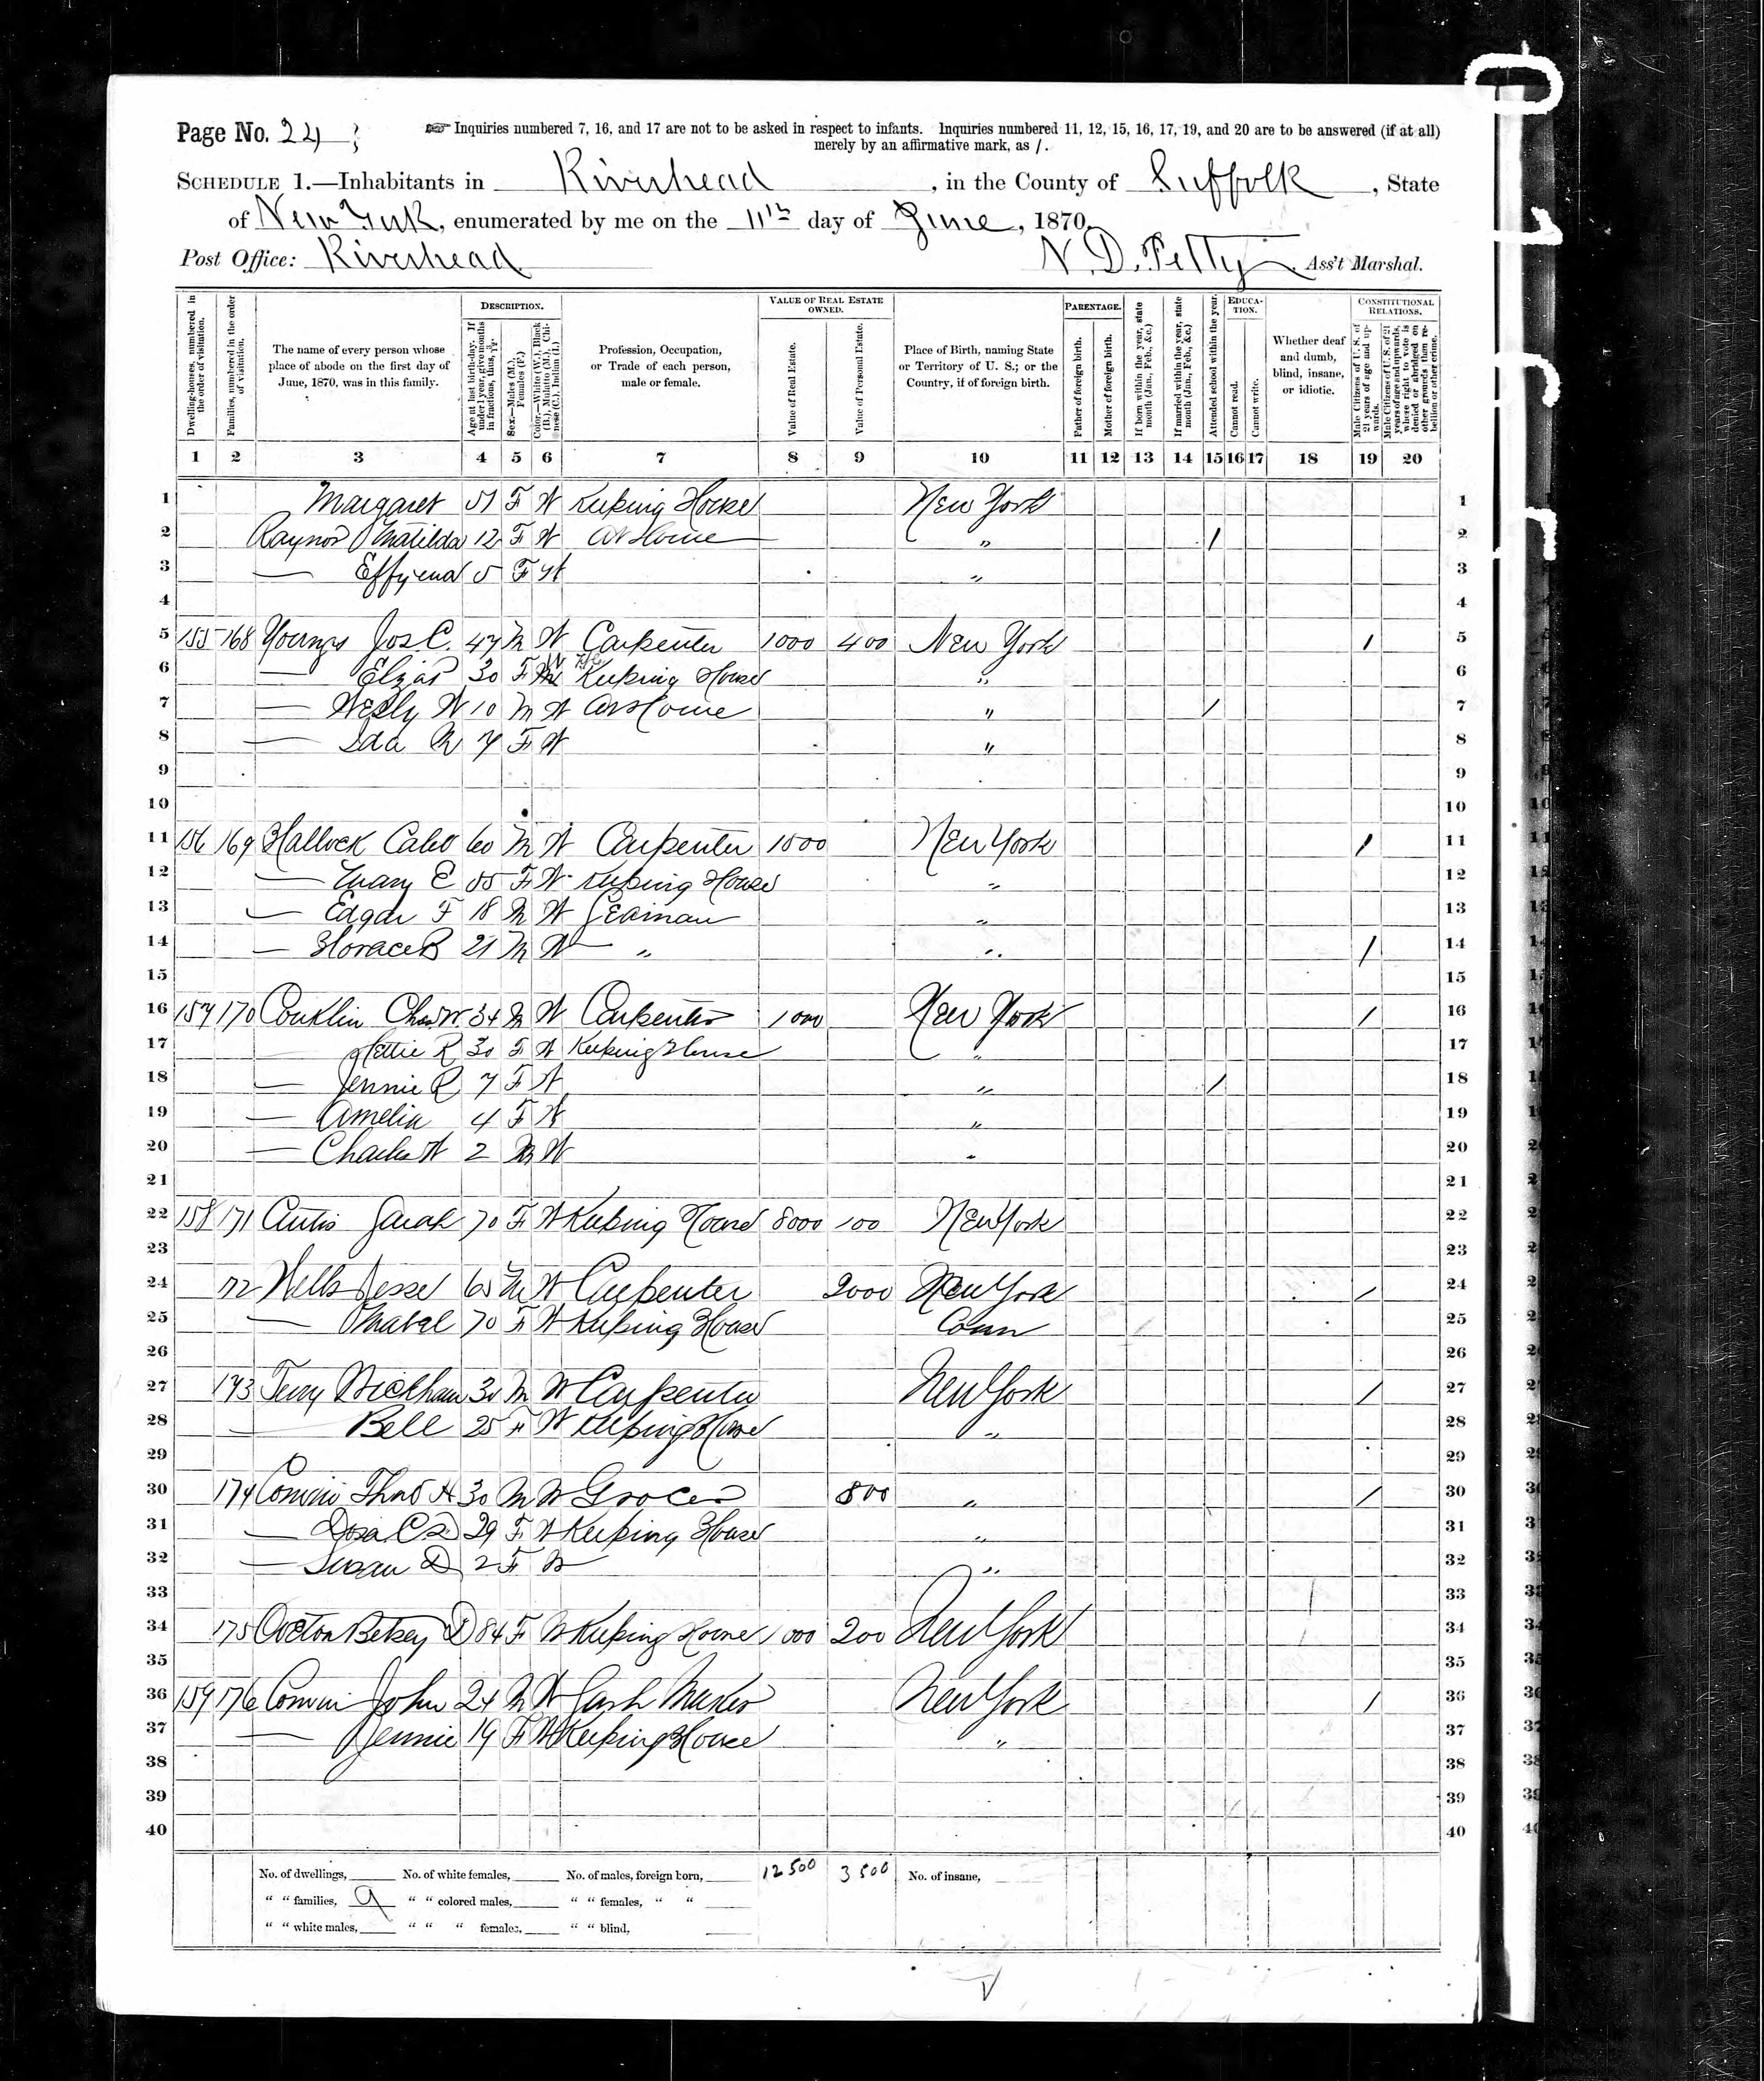 Page No. 24
☞ Inquiries numbered 7, 16, and 17 are not to be asked in respect to infants. Inquiries numbered 11, 12, 15, 16, 17, 19, and 20 are to be answered (if at all)
merely by an affirmative mark, as /.
SCHEDULE 1.—Inhabitants in Riverhead, in the County of Suffolk, State
of New York, enumerated by me on the 11th day of June, 1870.
Post Office: Riverhead N. D. Petty, Ass't Marshal.
Dwelling-houses, numbered in the order of visitation.
Families, numbered in the order of visitation.
The name of every person whose place of abode on the first day of June, 1870, was in this family.
DESCRIPTION.
Age at last birth-day. If under 1 year, give months in fractions, thus, 3/12.
Sex.—Males (M.), Females (F.)
Color.—White (W.), Black (B.), Mulatto (M.), Chinese (C.), Indian (I.)
Profession, Occupation, or Trade of each person, male or female.
VALUE OF REAL ESTATE OWNED.
Value of Real Estate.
Value of Personal Estate.
Place of Birth, naming State or Territory of U. S.; or the Country, if of foreign birth.
PARENTAGE.
Father of foreign birth.
Mother of foreign birth.
If born within the year, state month (Jan., Feb., &c.)
If married within the year, state month (Jan., Feb., &c.)
Attended school within the year.
EDUCATION.
Cannot read.
Cannot write.
Whether deaf and dumb, blind, insane, or idiotic.
CONSTITUTIONAL RELATIONS.
Male Citizens of U. S. of 21 years of age and upwards.
Male Citizens of U. S. of 21 years of age and upwards, where right to vote is denied or abridged on other grounds than rebellion or other crime.
1 2 3 4 5 6 7 8 9 10 11 12 13 14 15 16 17 18 19 20
1 Margaret 51 F W Keeping House New York 1
2 Raynor Matilda 12 F W At Home " / 2
3 — 5 F W " 3
4 4
5 155 168 Youngs Jos C. 47 M W Carpenter 1000 400 New York / 5
6 — 30 F W Keeping House " 6
7 — Wesly W 10 M W At Home " / 7
8 — Ida M 7 F W " 8
9 9
10 10
11 156 169 Hallock Caleb 60 M W Carpenter 1500 New York / 11
12 — Mary E 55 F W Keeping House " 12
13 — Edgar F 18 M W Seaman " 13
14 — Horace B 21 M W " " / 14
15 15
16 157 170 Conklin Chas W. 34 M W Carpenter 1000 New York / 16
17 Hettie R 30 F W Keeping House " 17
18 — Jennie R 7 F W " / 18
19 — Amelia 4 F W " 19
20 — Charles W 2 M W " 20
21 21
22 158 171 Sarah 70 F W Keeping House 8000 100 New York 22
23 23
24 172 Wells Jesse 65 M W Carpenter 2000 New York / 24
25 — Mabel 70 F W Keeping House Conn 25
26 26
27 173 Terry Wickham 30 M W Carpenter New York / 27
28 — Bell 25 F W Keeping House " 28
29 29
30 174 Corwin Thos H 30 M W Grocer 800 " / 30
31 — 29 F W Keeping House " 31
32 — Susan D 2 F W " 32
33 33
34 175 Betsey D 84 F W Keeping House 1000 200 New York 34
35 35
36 159 176 Corwin John 24 M W Sash Maker New York / 36
37 — Jennie 19 F W Keeping House " 37
38 38
39 39
40 40
No. of dwellings, No. of white females, No. of males, foreign born, 12500 3500 No. of insane,
" " families, 9 " " colored males, " " females, " "
" " white males, " " " females, " " blind,